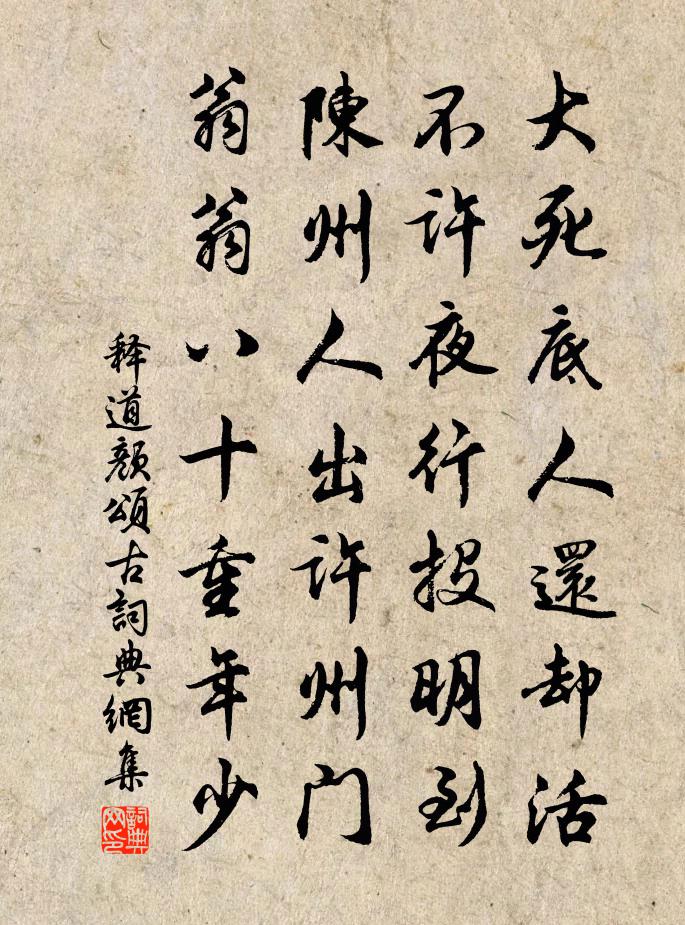 大死底人還却活
不许夜行投明到
陳州人出许州门
翁翁八十重年少
释道颜頌古詞典網集
詞典网印